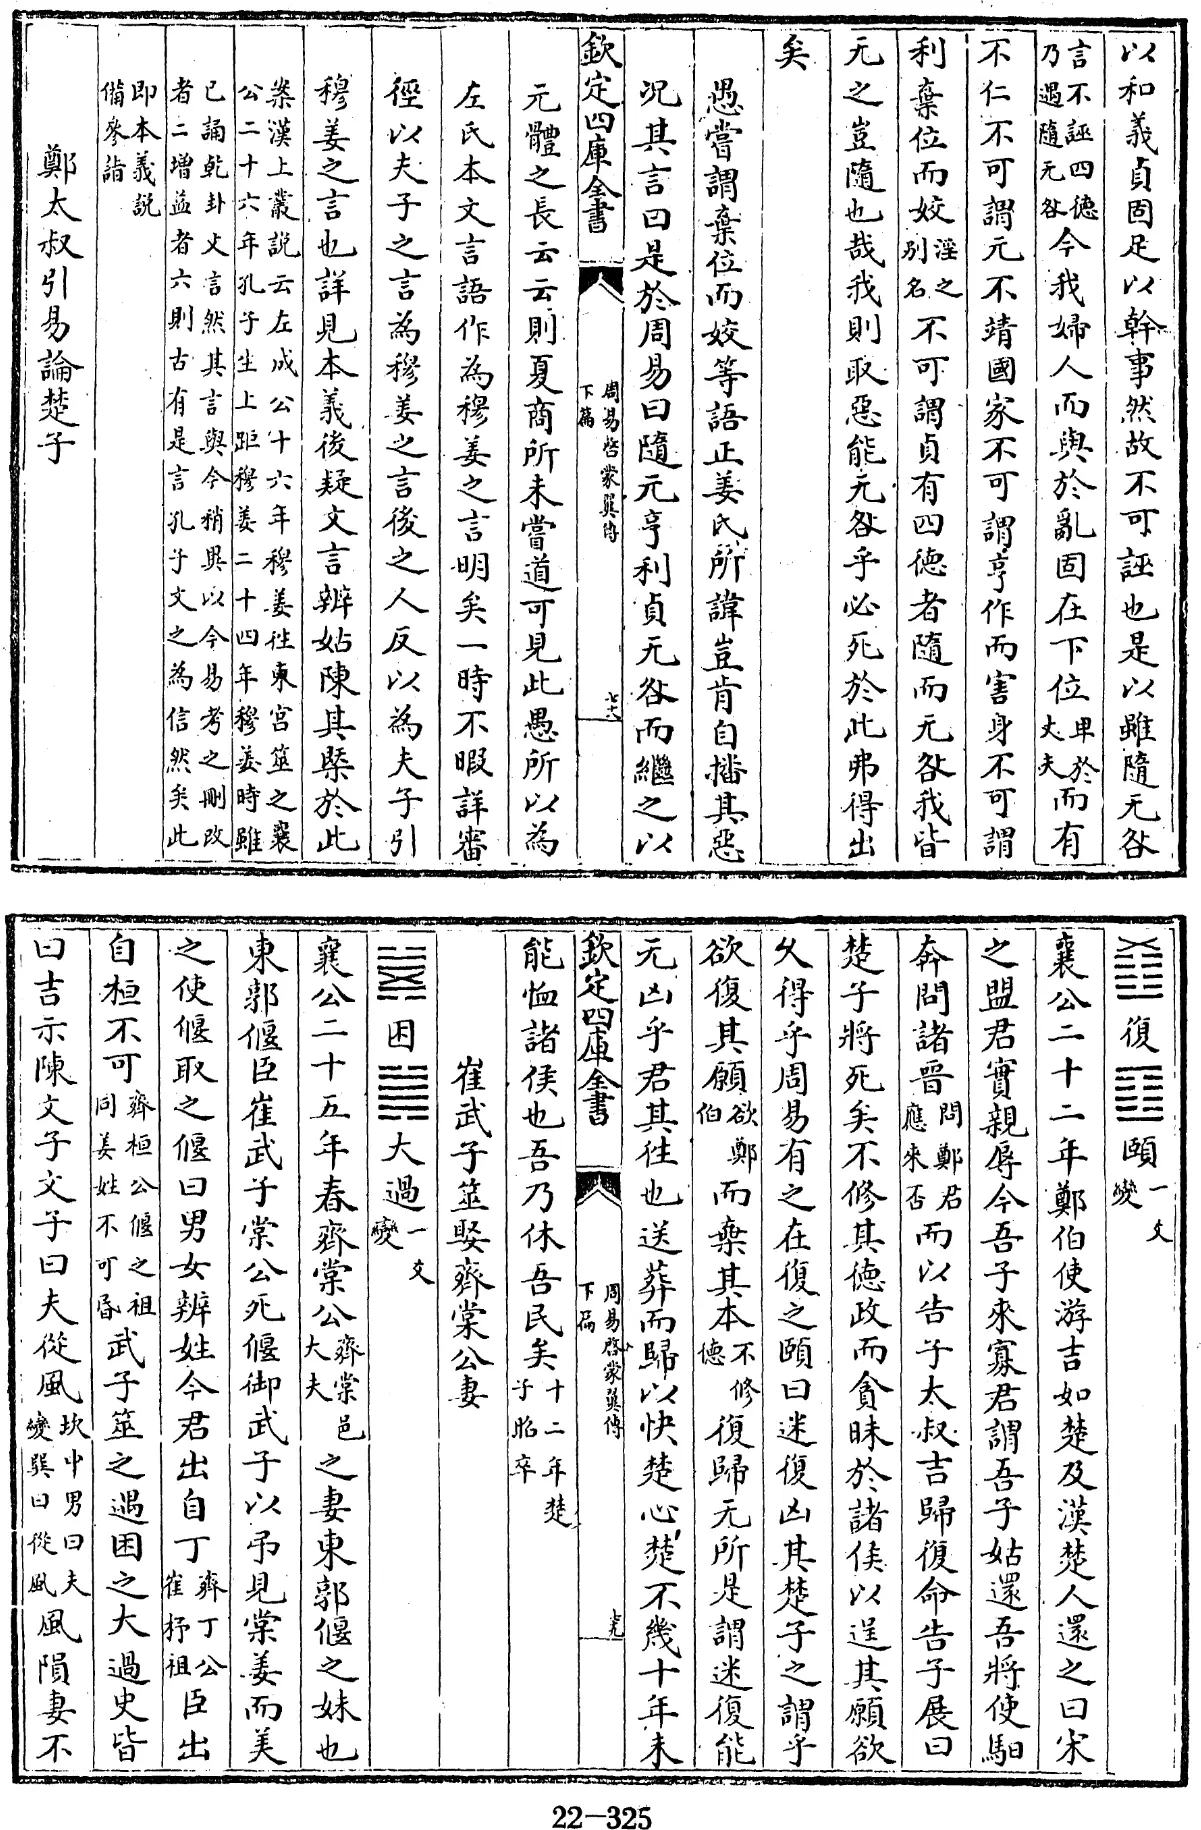 以和義貞固足以幹事然故不可誣也是以雖隨无咎
言不誣四德乃遇隨无咎今我婦人而與於亂固在下位卑於丈夫而有
不仁不可謂元不靖國家不可謂亨作而害身不可謂
利棄位而姣淫之別名不可謂貞有四德者隨而无咎我皆
无之豈隨也哉我則取惡能无咎乎必死於此弗得出
矣
愚嘗謂棄位而姣等語正姜氏所諱豈肯自播其惡
况其言曰是於周易曰隨元亨利貞无咎而繼之以
欽定四庫全書
周易啓蒙翼傳下篇
七十八
元體之長云云則夏商所未嘗道可見此愚所以為
左氏本文言語作為穆姜之言明矣一時不暇詳審
徑以夫子之言為穆姜之言後之人反以為夫子引
穆姜之言也詳見本義後疑文言辨姑陳其槩於此
案漢上叢説云左成公十六年穆姜徃東宫筮之襄
公二十六年孔子生上距穆姜二十四年穆姜時雖
已誦乾卦文言然其言與今稍異以今易考之刪改
者二增益者六則古有是言孔子文之為信然矣此
即本義説
備參詣
鄭太叔引易論楚子
復 頤一爻變
襄公二十二年鄭伯使游吉如楚及漢楚人還之曰宋
之盟君實親辱今吾子來寡君謂吾子姑還吾將使馹
奔問諸晉問鄭君應來否而以告子太叔吉歸復命告子展曰
楚子將死矣不修其德政而貪昧於諸侯以逞其願欲
久得乎周易有之在復之頤曰迷復凶其楚子之謂乎
欲復其願欲鄭伯而棄其本不修德復歸无所是謂迷復能
无凶乎君其徃也送葬而歸以快楚心楚不幾十年未
欽定四庫全書
周易啓蒙翼傳下篇
七十九
能恤諸侯也吾乃休吾民矣十二年楚子昭卒
崔武子筮娶齊棠公妻
困 大過一爻變
襄公二十五年春齊棠公齊棠邑大夫之妻東郭偃之妹也
東郭偃臣崔武子棠公死偃御武子以弔見棠姜而美
之使偃取之偃曰男女辨姓今君出自丁齊丁公崔杼祖臣出
自桓不可齊桓公偃之祖同姜姓不可昏武子筮之遇困之大過史皆
曰吉示陳文子文子曰夫從風坎中男曰夫變巽曰從風風隕妻不
22-325